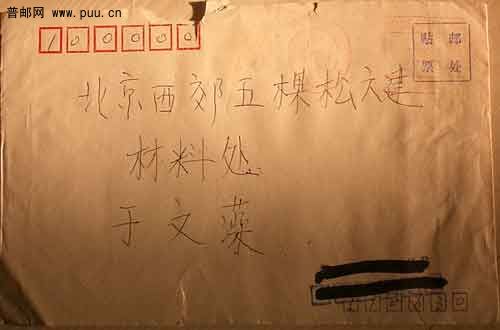 普邮网
www.puu.cn
100000
贴邮
票处
北京西郊五棵松六建
材料处
于文藻